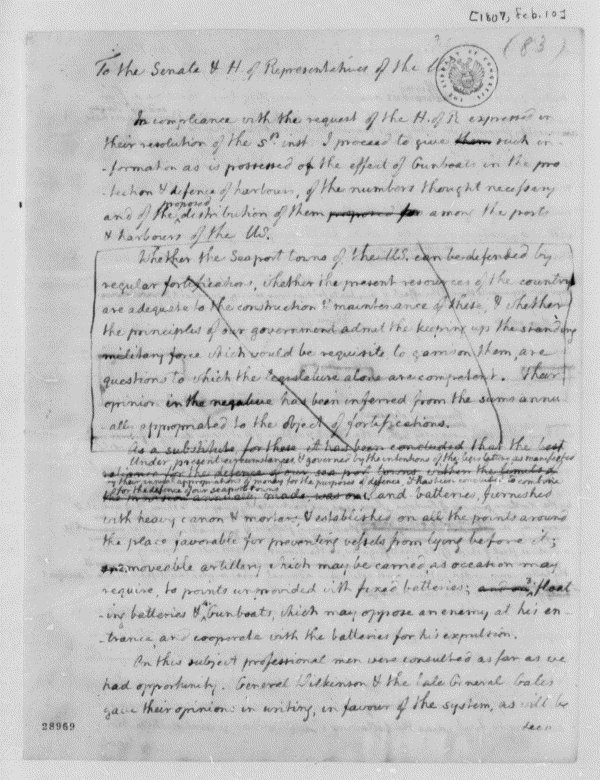 [1807, Feb. 10]
(83)
To the Senate & H of Representatives of the U
THE LIBRARY OF CONGRESS
In compliance with the request of the H. of R. expressed in
their resolution of the 5th inst. I proceed to give them such in-
-formation as is possessed of the effect of Gunboats in the pro
-tection & defence of harbours, of the numbers thought necessary
proposed
and of the distribution of them proposed for among the ports
& harbours of the US.
Whether the Seaport towns of the US. can be defended by
regular fortifications, whether the present resources of the country
are adequate to the construction & maintenance of these, & whether
the principles of our government admit the keeping up the standing
military force which would be requisite to garrison them, are
questions to which the legislature alone are competent. their
opinion in the negative has been inferred from the sums annu
-ally appropriated to the object of fortifications.
As a substitute for these it has been concluded that the best
Under present circumstances, & governed by the intentions of the legislature as manifested
reliance for the defence of our sea port towns within the limits of
by their annual appropriations of money for the purposes of defence, it has been concluded to combine
for the defence of our seaport towns
the means annually made was on land batteries, furnished
with heavy canon & mortars, & established on all the points around
the place favorable for preventing vessels from lying before it;
and moveable artillery which may be carried, as occasion may
require, to points unprovided with fixed batteries; and on float
-ing batteries & Gunboats, which may oppose an enemy at his en-
-trance, and cooperate with the batteries for his expulsion.
On this subject professional men were consulted as far as we
had opportunity. General Wilkinson & the late General Gates
gave their opinions in writing, in favour of the system, as will be
seen
28969